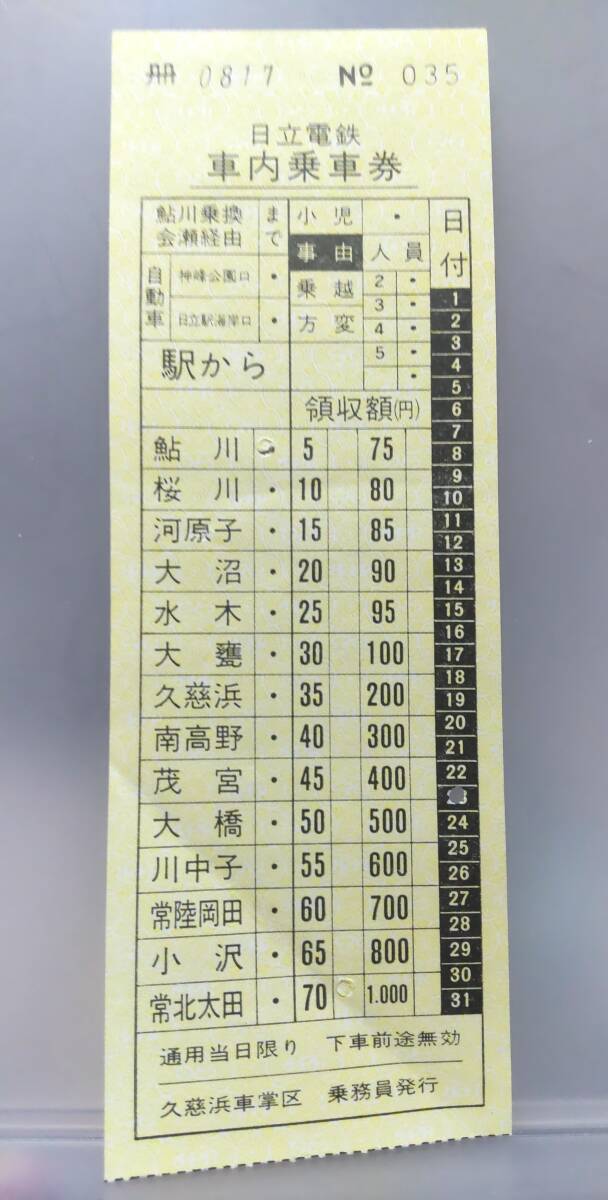 冊 0817 № 035
日立電鉄
車内乗車券
鮎川乗換
会瀬経由
まで
自動車
神峰公園口 ・
日立駅海岸口 ・
駅から
小児 ・
事由 人員
乗越
方変
2 ・
3 ・
4 ・
5 ・
・
日付
領収額(円)
鮎川 ・ 5 75
桜川 ・ 10 80
河原子 ・ 15 85
大沼 ・ 20 90
水木 ・ 25 95
大甕 ・ 30 100
久慈浜 ・ 35 200
南高野 ・ 40 300
茂宮 ・ 45 400
大橋 ・ 50 500
川中子 ・ 55 600
常陸岡田 ・ 60 700
小沢 ・ 65 800
常北太田 ・ 70 1.000
1
2
3
4
5
6
7
8
9
10
11
12
13
14
15
16
17
18
19
20
21
22
24
25
26
27
28
29
30
31
通用当日限り 下車前途無効
久慈浜車掌区 乗務員発行